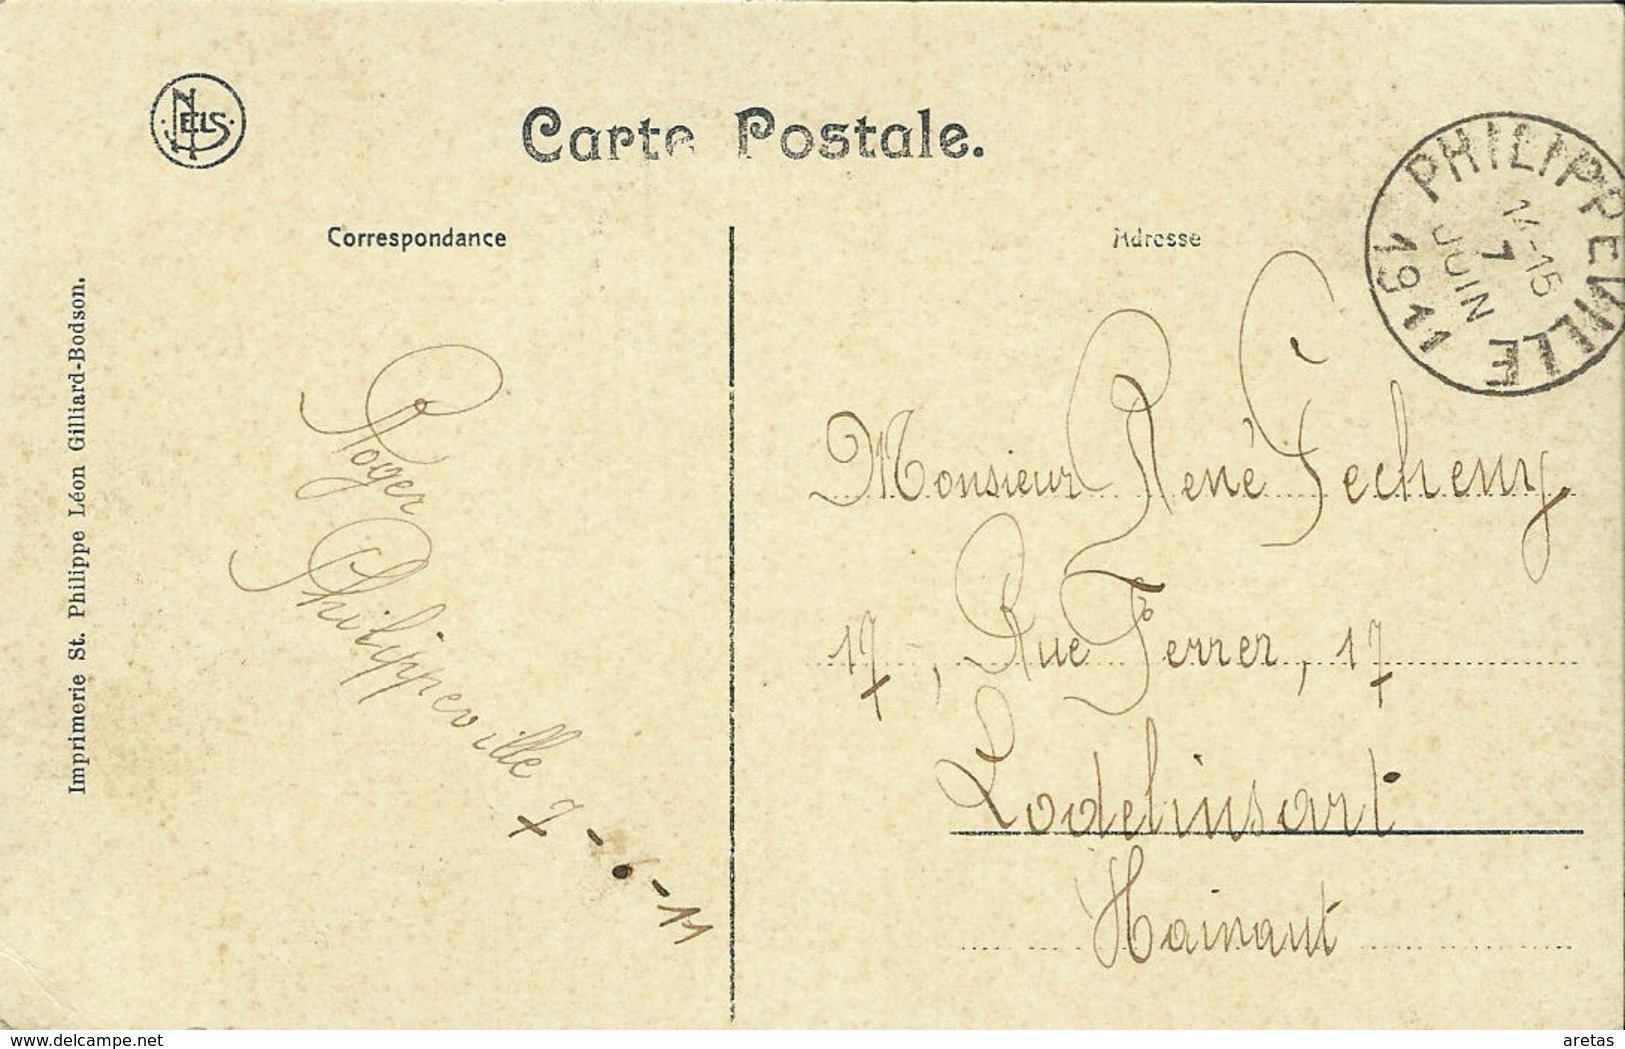 NELS
Carte Postale.
Correspondance
Adresse
PHILIPPEVILLE
14-15
7
JUIN
1911
Imprimerie St. Philippe Léon Gilliard-Bodson.
Roger
Philippeville 7-6-11
Monsieur René
17, Rue Ferrer, 17
Lodelinsart
Hainaut
www.delcampe.net
aretas